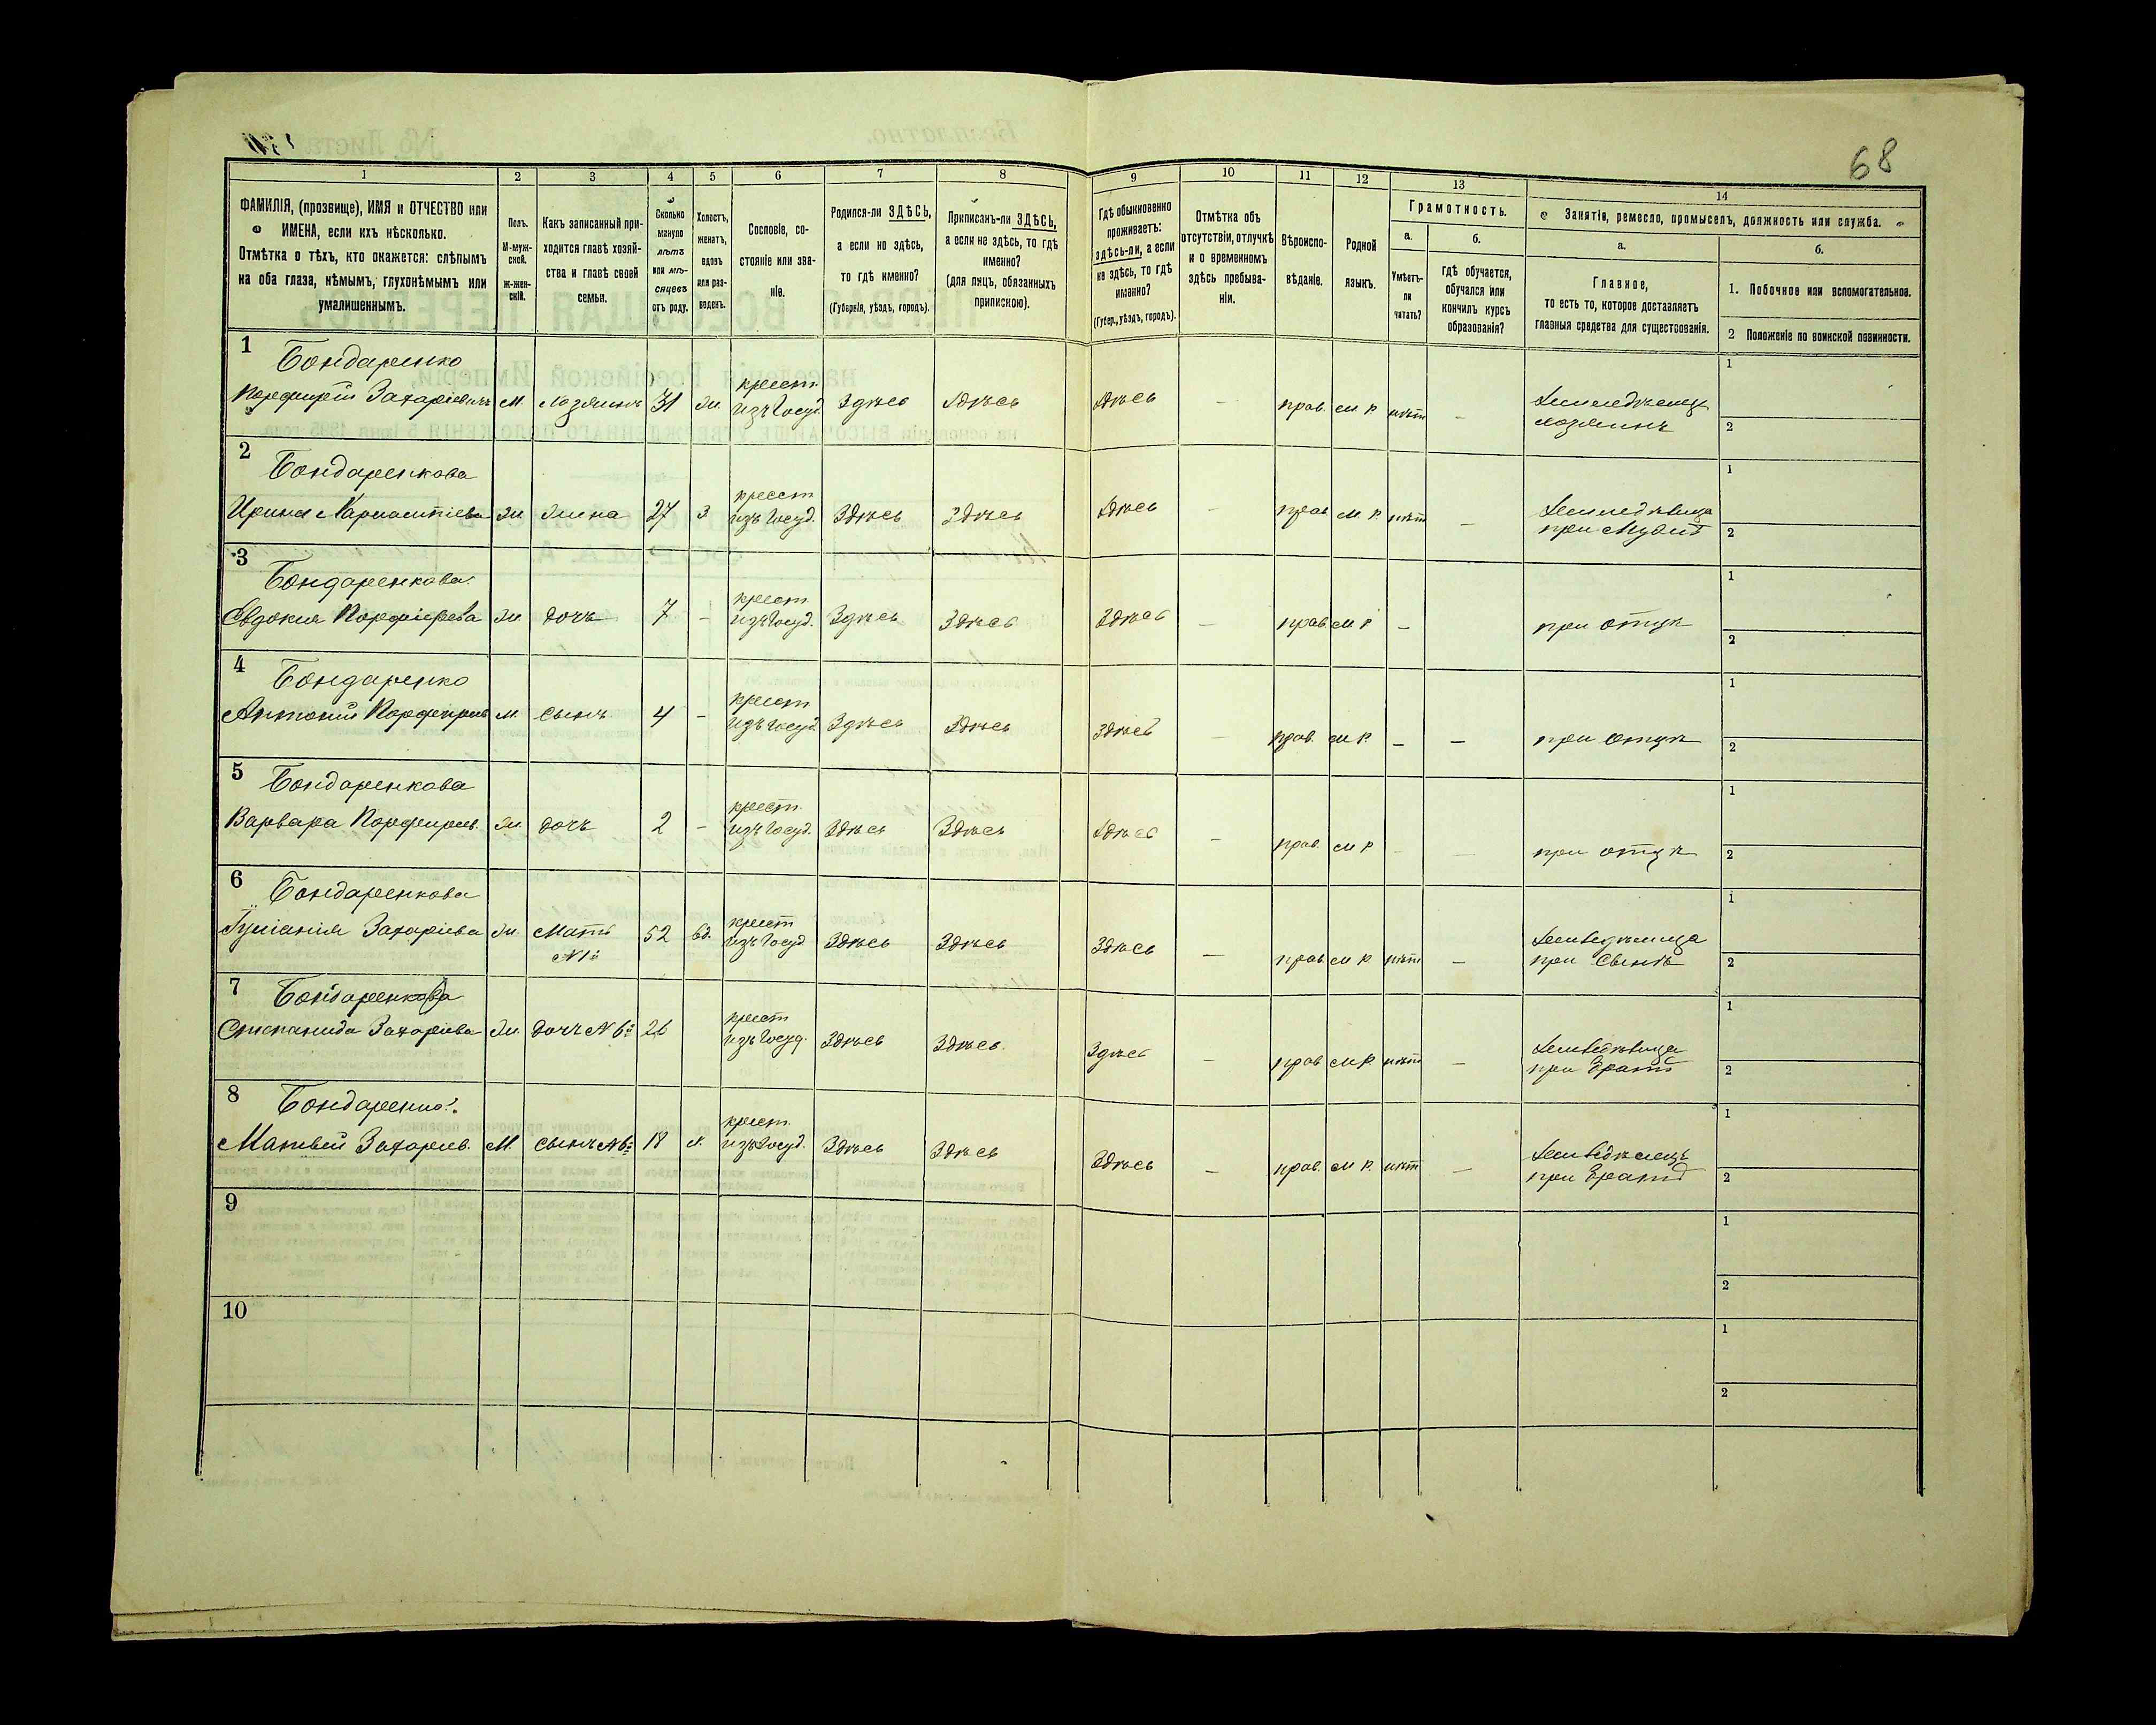 68
1 2 3 4 5 6 7 8 9 10 11 12 13 14
ФАМИЛІЯ, (прозвище), ИМЯ и ОТЧЕСТВО или
ИМЕНА, если ихъ нѣсколько.
Отмѣтка о тѣхъ, кто окажется: слѣпымъ
на оба глаза, нѣмымъ, глухонѣмымъ или
умалишеннымъ.
Полъ.
М-муж-
ской.
Ж-жен-
скій.
Какъ записанный при-
ходится главѣ хозяй-
ства и главѣ своей
семьи.
Сколько
минуло
лѣтъ
или мѣ-
сяцевъ
отъ роду.
Холостъ,
женатъ,
вдовъ
или раз-
веденъ.
Сословіе, со-
стояніе или зва-
ніе.
Родился-ли ЗДѢСЬ,
а если не здѣсь,
то гдѣ именно?
(Губернія, уѣздъ, городъ).
Приписанъ-ли ЗДѢСЬ,
а если не здѣсь, то гдѣ
именно?
(для лицъ, обязанныхъ
припискою).
Гдѣ обыкновенно
проживаетъ:
здѣсь-ли, а если
не здѣсь, то гдѣ
именно?
(Губер., уѣздъ, городъ).
Отмѣтка объ
отсутствіи, отлучкѣ
и о временномъ
здѣсь пребыва-
ніи.
Вѣроиспо-
вѣданіе.
Родной
языкъ.
Грамотность.
а.
Умѣетъ-
ли
читать?
б.
гдѣ обучается,
обучался или
кончилъ курсъ
образованія?
Занятія, ремесло, промыселъ, должность или служба.
а.
Главное,
то есть то, которое доставляетъ
главныя средства для существованія.
б.
1. Побочное или вспомогательное.
2 Положеніе по воинской повинности.
1 Бондаренко крест. 1
Порфирій Захаріевичъ М хозяинъ 31 ж. изъ Госуд. Здѣсь Здѣсь Здѣсь — прав. м р нѣтъ — Земледѣлецъ
хозяинъ 2
2 Бондаренкова крест 1
Ирина ж жена 27 з. изъ Госуд. Здѣсь Здѣсь Здѣсь — прав м р. нѣтъ — Земледѣлица
при мужѣ 2
3 Бондаренкова крест 1
Евдокия Порфирьева ж дочь 7 — изъ Госуд. Здѣсь Здѣсь Здѣсь — прав. м р — при отцѣ 2
4 Бондаренко крест 1
Антоній Порфирьев м. сынъ 4 — изъ Госуд. Здѣсь Здѣсь Здѣсь — прав. м р. — — при отцѣ 2
5 Бондаренкова крест. 1
Варвара Порфирьев. ж дочь 2 — изъ Госуд. Здѣсь Здѣсь Здѣсь — прав. м р — — при отцѣ 2
6 Бондаренкова крест 1
Захаріева ж. Мать 52 вд. изъ Госуд Здѣсь Здѣсь Здѣсь — прав м р нѣтъ — Земледѣлица
№1й при сынѣ 2
7 Бондаренкова крест 1
Степанида Захарьева ж. дочь №6й 26 изъ Госуд. Здѣсь Здѣсь Здѣсь — прав м р. нѣтъ — Земледѣлица
при братѣ 2
8 Бондаренко. крест. 1
Матвѣй Захарьев. М. сынъ №6й 18 х. изъ Госуд. Здѣсь Здѣсь Здѣсь — прав. м р. нѣтъ — Земледѣлецъ
при братѣ 2
9 1
2
10 1
2